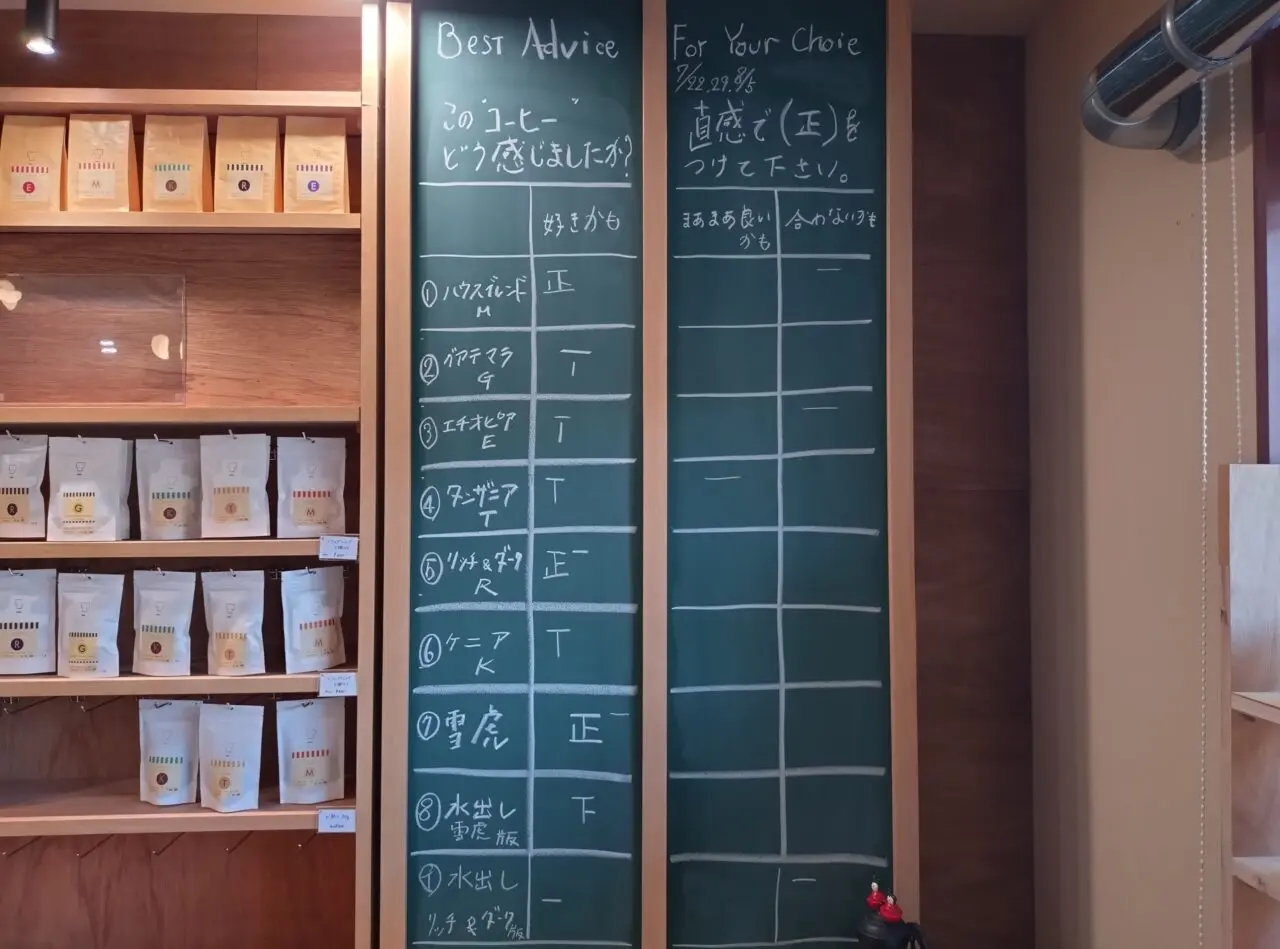 Best Advice
この"コーヒー"
どう感じましたか?
好きかも
①ハウスブレンド 正
M
②グアテマラ T
G
③エチオピア T
E
④タンザニア T
T
⑤リッチ&ダーク 正一
R
⑥ケニア T
K
⑦雪虎 正一
⑧水出し 下
雪虎版
⑨水出し 一
リッチ&ダーク版
For Your Choie
7/22.29.8/5
直感で(正)を
つけて下さい。
まあまあ良い 合わないかも
かも
一
一
一
一
E
M
K
R
E
R
G
K
T
M
R
G
K
T
M
K
T
M